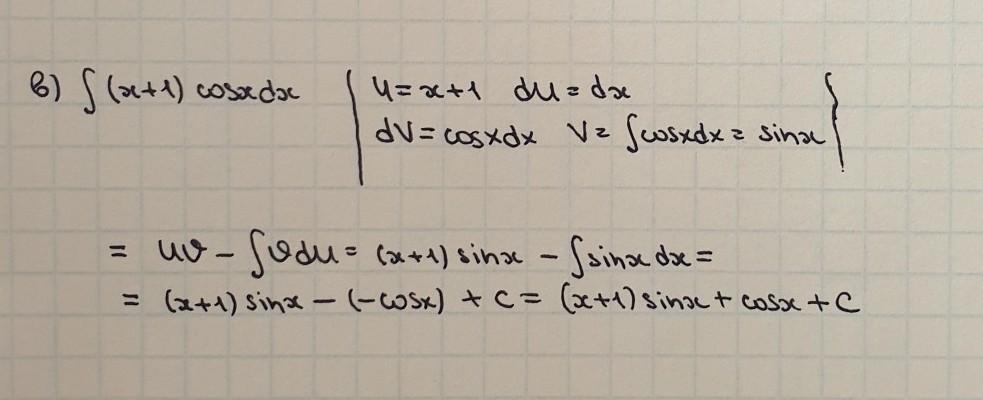 в) ∫(x+1) cosxdx | u=x+1 du=dx
dV=cosxdx V=∫cosxdx=sinx }
= uv - ∫vdu = (x+1) sinx - ∫sinx dx =
= (x+1) sinx - (-cosx) + c = (x+1) sinx + cosx + C